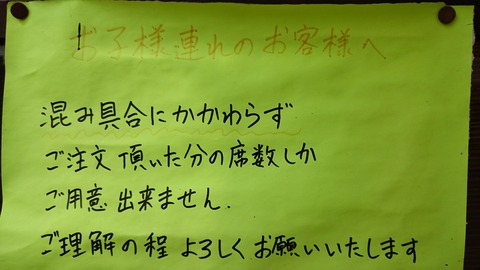 お子様連れのお客様へ
混み具合にかかわらず
ご注文頂いた分の席数しか
ご用意出来ません.
ご理解の程よろしくお願いいたします